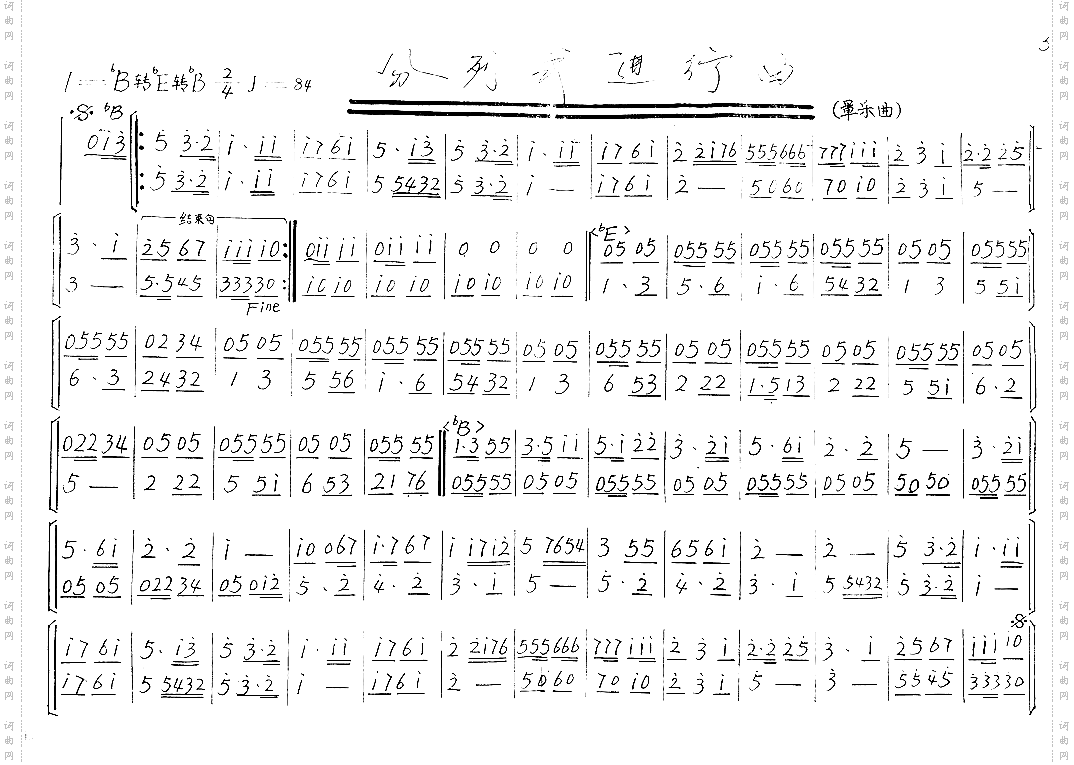 分列式进行曲
3
1 — ♭B转♭E转♭B 2/4 ♩— 84
(军乐曲)
𝄋 ♭B
0i3 ‖: 5 3·2 | i · ii | i76i | 5 · i3 | 5 3·2 | i · ii | i 76i | 2 2i76 | 555666 | 777iii | 2 3 i | 2·2 25
5 3·2 | i · ii | i76i | 5 5432 | 5 3·2 | i — | i76i | 2 — | 5060 | 70i0 | 2 3 i | 5 —
结束句
3 · i | 25 67 | iiii i0 :‖ 0ii ii | 0ii ii | 0 0 | 0 0 ‖ <♭E> 05 05 | 055 55 | 055 55 | 055 55 | 05 05 | 055 55
3 — | 5·5 45 | 33330 :‖ i0 i0 | i0 i0 | i0 i0 | i0 i0 ‖ 1 · 3 | 5 · 6 | i · 6 | 5432 | 1 3 | 5 5i
Fine
055 55 | 02 34 | 05 05 | 055 55 | 055 55 | 055 55 | 05 05 | 055 55 | 05 05 | 055 55 | 05 05 | 055 55 | 05 05
6 · 3 | 2432 | 1 3 | 5 56 | i · 6 | 5432 | 1 3 | 6 53 | 2 22 | 1·5 13 | 2 22 | 5 5i | 6 · 2
022 34 | 05 05 | 055 55 | 05 05 | 055 55 ‖ <♭B> i·3 55 | 3·5 ii | 5·i 22 | 3 · 2i | 5 · 6i | 2 · 2 | 5 — | 3 · 2i
5 — | 2 22 | 5 5i | 6 53 | 2i 76 ‖ 055 55 | 05 05 | 055 55 | 05 05 | 055 55 | 05 05 | 50 50 | 055 55
5 · 6i | 2 · 2 | i — | i0 067 | i·7 67 | i i7i2 | 5 7654 | 3 55 | 656i | 2 — | 2 — | 5 3·2 | i · ii
05 05 | 022 34 | 05 0i2 | 5 · 2 | 4 · 2 | 3 · i | 5 — | 5 · 2 | 4 · 2 | 3 · i | 5 5432 | 5 3·2 | i —
𝄋
i7 6i | 5 · i3 | 5 3·2 | i · ii | i76i | 2 2i76 | 555666 | 777iii | 2 3 i | 2·2 25 | 3 · i | 2567 | iiii i0
i7 6i | 5 5432 | 5 3·2 | i — | i76i | 2 — | 5060 | 70 i0 | 2 3 i | 5 — | 3 — | 5545 | 33330
词曲网